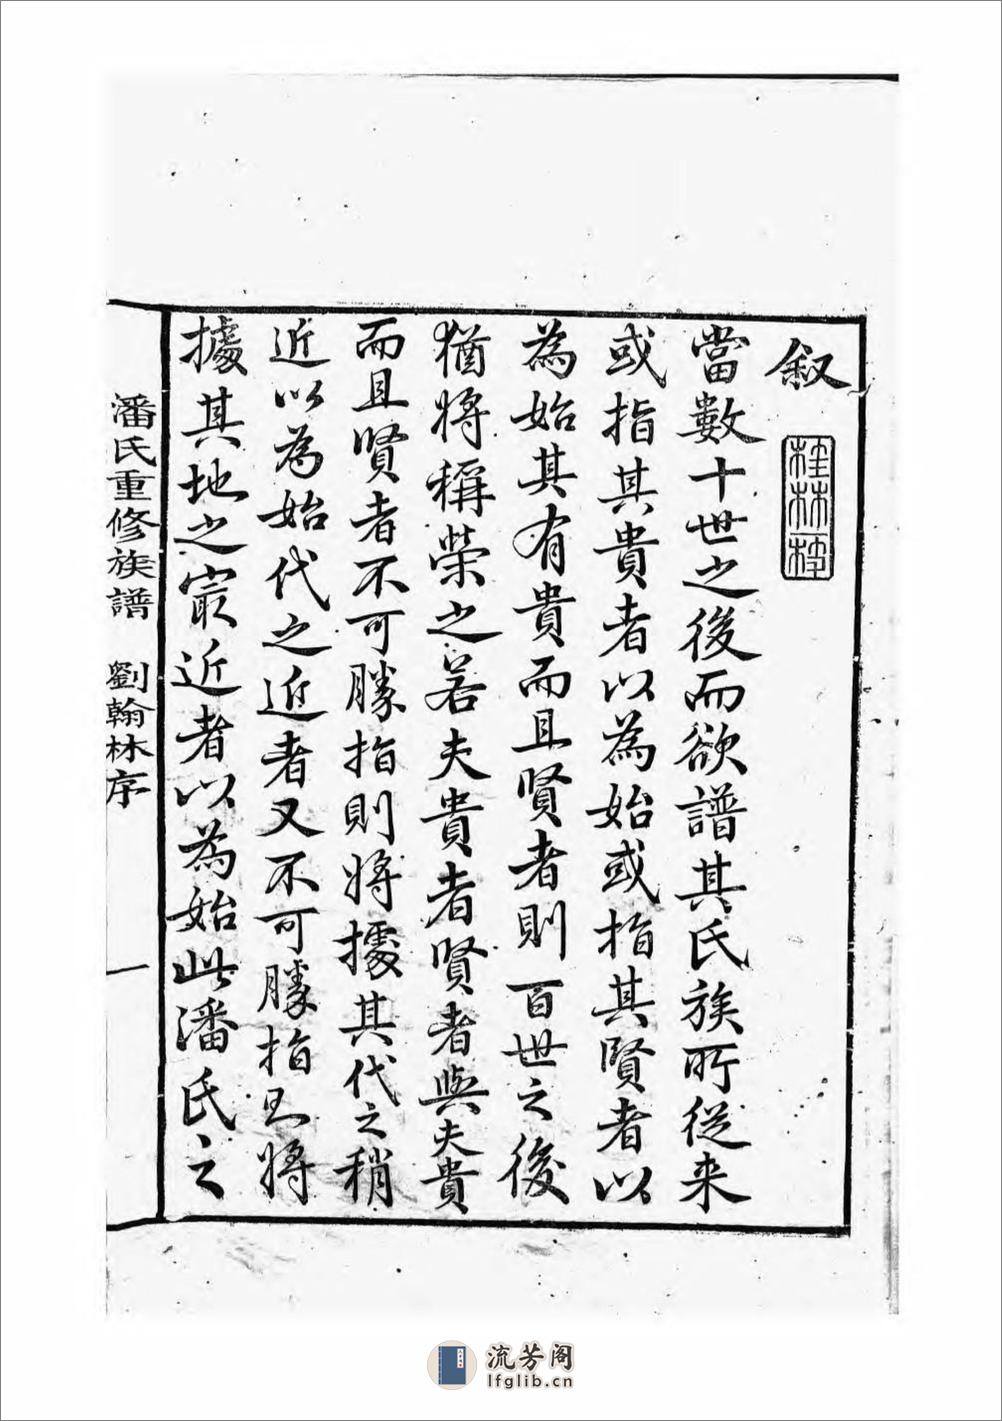 叙
桂林梓
當數十世之後而欲譜其氏族所從来
或指其貴者以為始或指其賢者以
為始其有貴而且賢者則百世之後
猶將稱榮之若夫貴者賢者與夫貴
而且賢者不可勝指則將據其代之稍
近以為始代之近者又不可勝指則將
據其地之寂近者以為始此潘氏之
潘氏重修族譜 劉翰林序 一
流芳阁
lfglib.cn